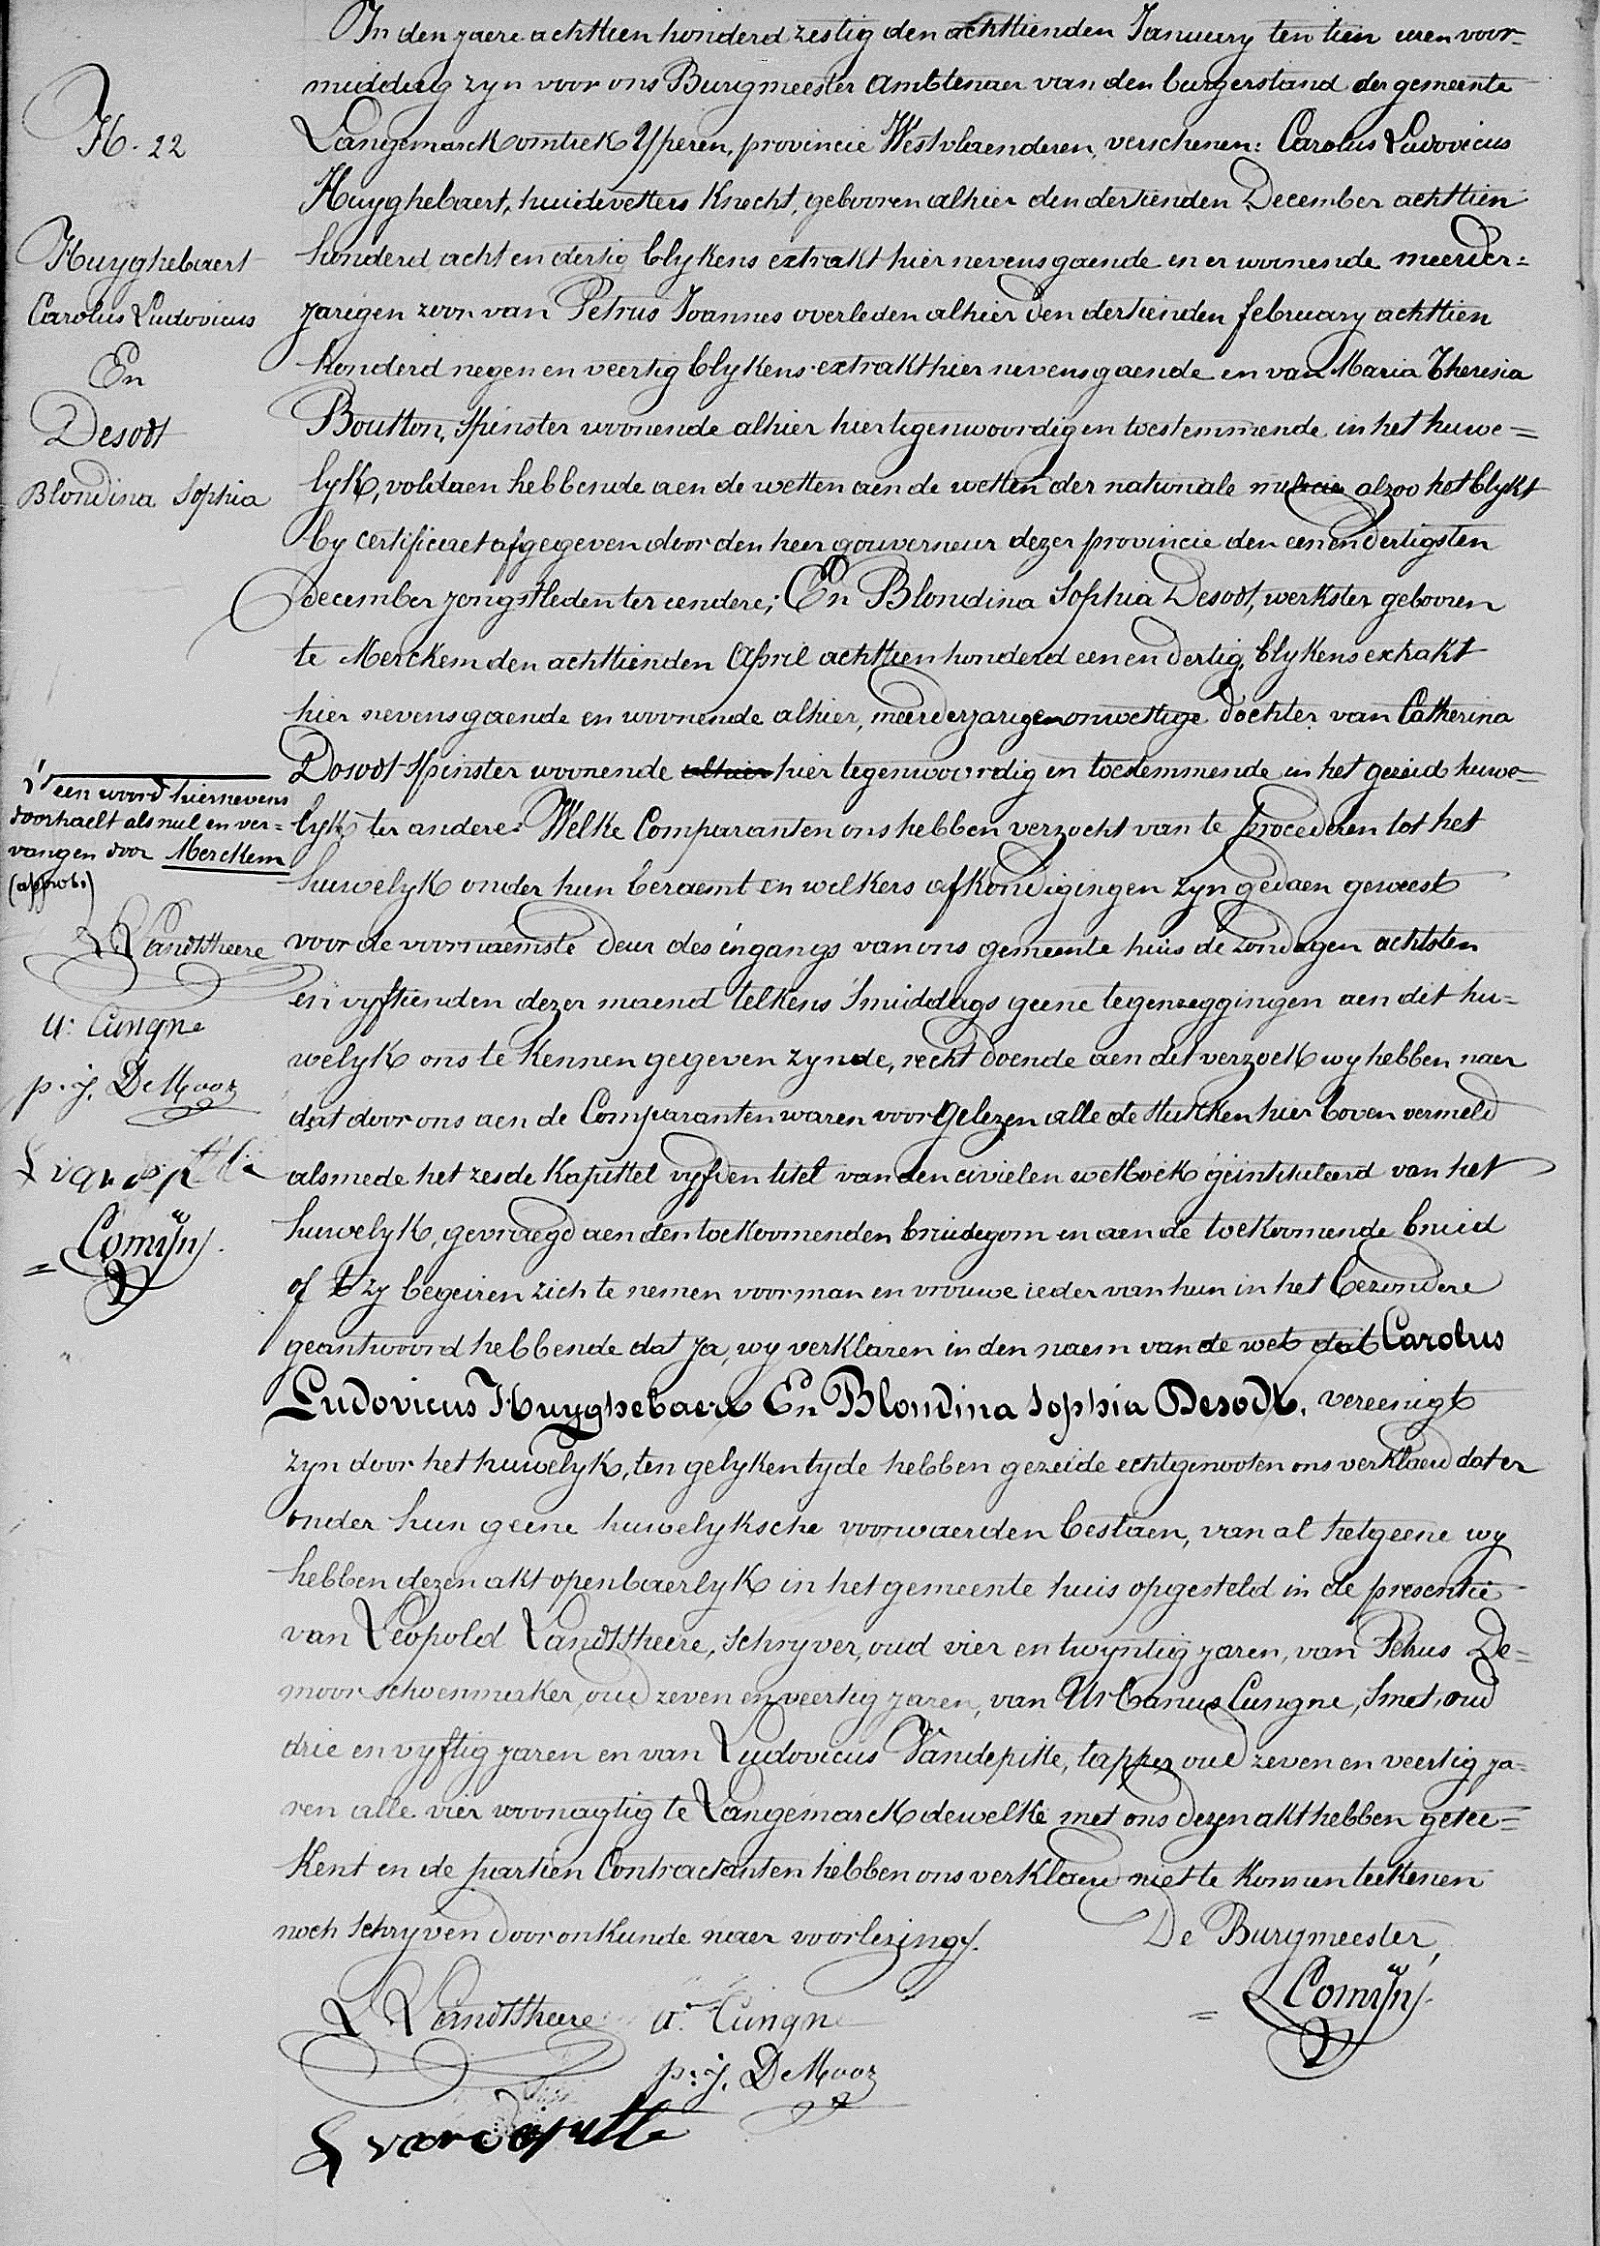 In den jaere achttien honderd zestig den achttienden January ten tien uren voor-
middag zyn voor ons Burgmeester Ambtenaer van den burgerstand der gemeente
Langemarck omtrek Yperen, provincie Westvlaenderen, verschenen: Carolus Ludovicus
Huyghebaert, huidevetters Knecht, gebooren alhier den dertienden December achttien
honderd acht en dertig blykens extrakt hier nevensgaende en er woonende meerder=
jarigen zoon van Petrus Joannes overleden alhier den dertienden february achttien
honderd negen en veertig blykens extrakt hier nevensgaende en van Maria Theresia
Boutton, Spinster woonende alhier hier tegenwoordig en toestemmende in het huwe=
lyk, voldaen hebbende aen de wetten aen de wetten der nationale milicie alzoo het blykt
by certificaet afgegeven door den heer gouverneur dezer provincie den eenendertigsten
december jongstleden ter eendere; En Blondina Sophia Desodt, werkster gebooren
te Merckem den achttienden April achttien honderd een en dertig, blykens extrakt
hier nevensgaende en woonende alhier, meerderjarige onwettige dochter van Catherina
Dosodt Spinster woonende alhier hier tegenwoordig en toestemmende in het gezeid huwe-
lyk ter andere. Welke Comparanten ons hebben verzocht van te procederen tot het
huwelyk onder hun beraemt en welkers afkondigingen zyn gedaen geweest
voor de voornaemste deur des ingangs van ons gemeente huis de zondagen achtsten
en vyftienden dezer maend telkens 's middags geene tegenzeggingen aen dit hu=
welyk ons te kennen gegeven zynde, recht doende aen dit verzoek wy hebben naer
dat door ons aen de Comparanten waren voorgelezen alle de stukken hier boven vermeld
alsmede het zesde Kapittel vyfden titel van den civielen wetboek geïntituleerd van het
huwelyk, gevraegd aen den toekoomenden bruidegom en aen de toekoomende bruid
of zy begeiren zich te nemen voor man en vrouwe ieder van hun in het bezondere
geantwoord hebbende dat ja, wy verklaren in den naem van de wet dat Carolus
Ludovicus Huyghebaert En Blondina Sophia Desodt, vereenigt
zyn door het huwelyk, ten gelyken tyde hebben gezeide echtgenooten ons verklaerd dat er
onder hun geene huwelyksche voorwaerden bestaen, van al hetgeene wy
hebben dezen akt openbaerlyk in het gemeente huis opgesteld in de presentie
van Leopold Landtsheere, Schryver, oud vier en twyntig jaren, van Petrus De=
moor schoenmaker, oud zeven en veertig jaren, van Urbanus Cungne, Smet, oud
drie en vyftig jaren en van Ludovicus Vandepitte, tapper oud zeven en veertig ja=
ren alle vier woonagtig te Langemarck dewelke met ons dezen akt hebben getee=
kent en de partien Contractanten hebben ons verklaerd niet te konnen teekenen
noch schryven door onkunde naer voorlezing.
De Burgmeester,
L Landtsheere
u. Cungne
Comyn
p: j. DeMoor
L vandepitte
N. 22
Huyghebaert
Carolus Ludovicus
En
Desodt
Blondina Sophia
een woord hiernevens
doorhaelt als nul en ver=
vangen door Merckem
(approb.)
L Landtsheere
u: Cungne
p. j. DeMoor
L vandepitte
Comyn